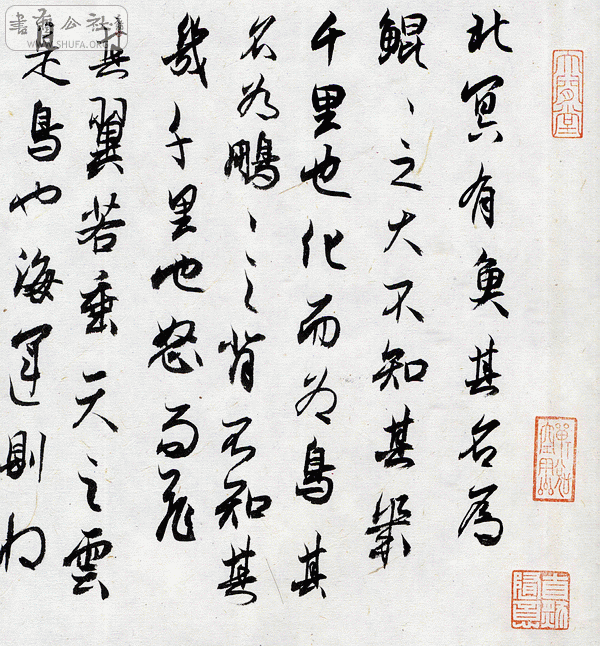 北冥有魚其名為
鯤〻之大不知其幾
千里也化而為鳥其
名為鵬〻之背不知其
幾千里也怒而飛
其翼若垂天之雲
是鳥也海運則將
WWW.SHUFA.ORG